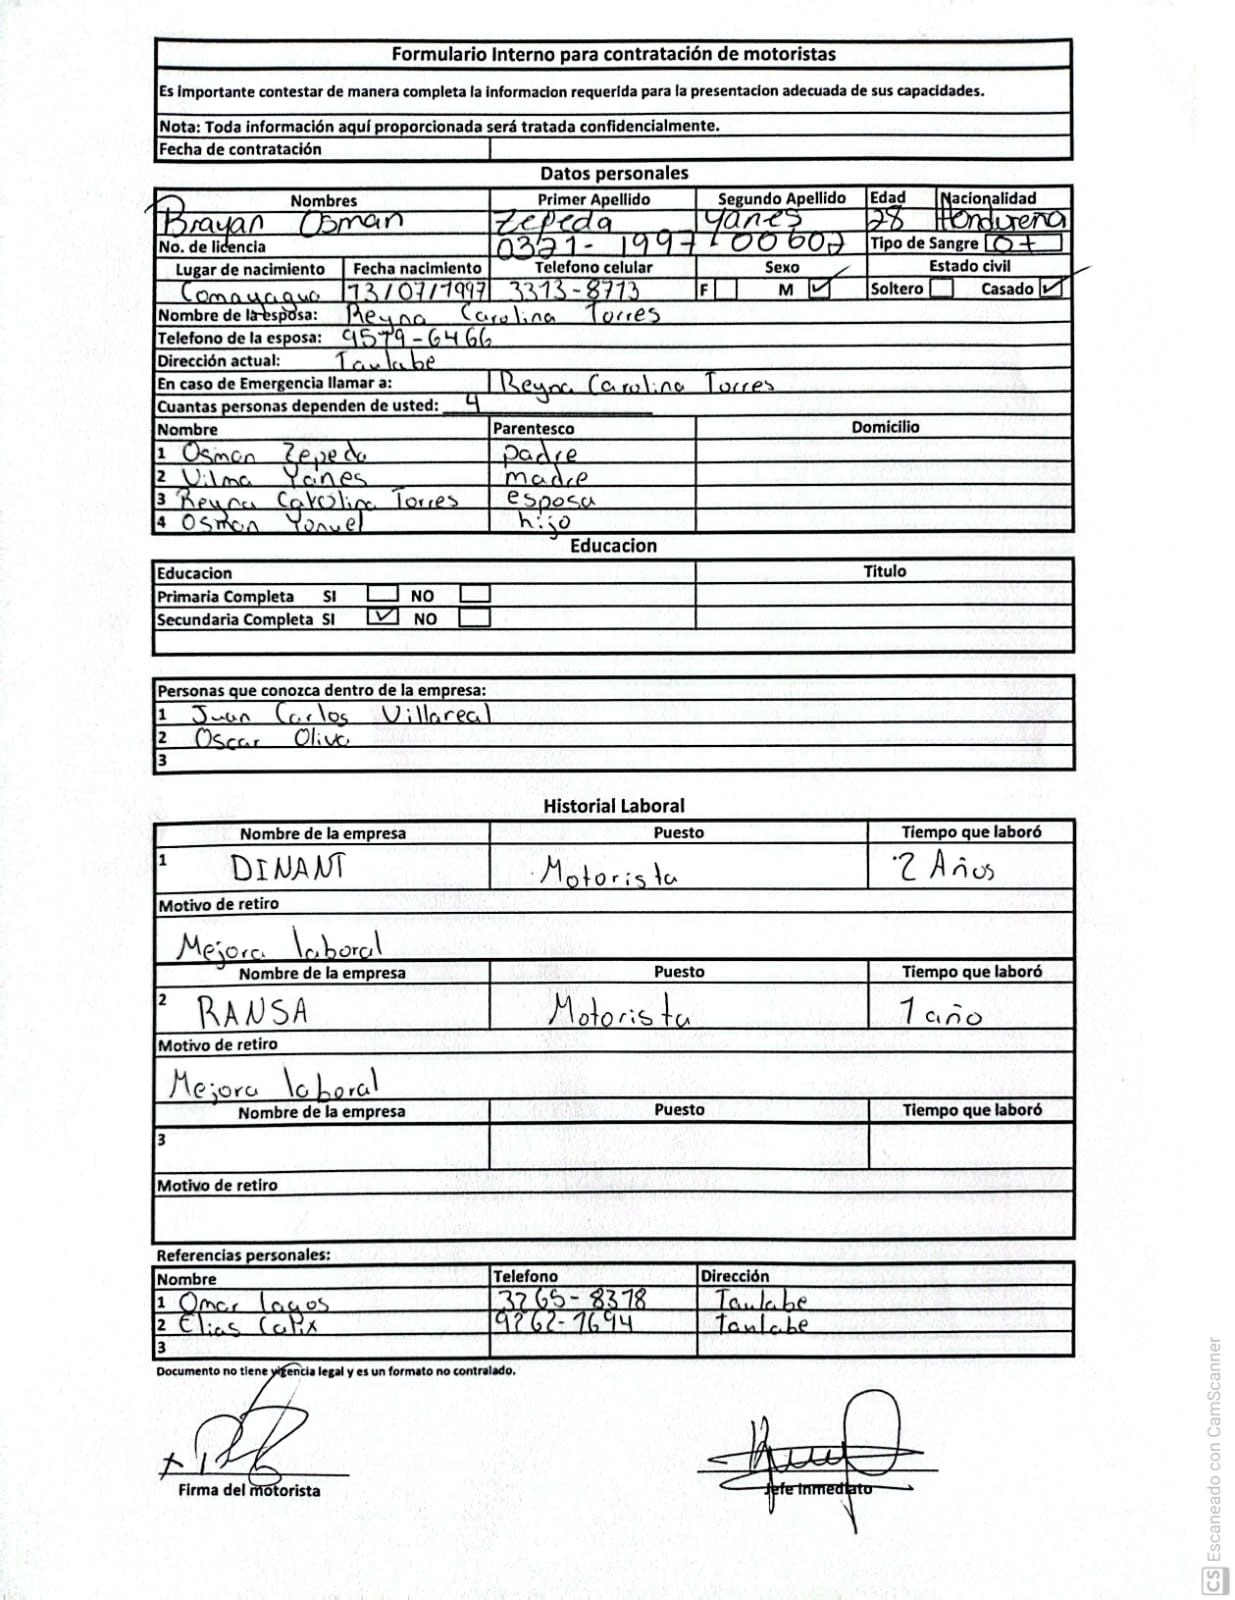 Formulario Interno para contratación de motoristas
Es importante contestar de manera completa la informacion requerida para la presentacion adecuada de sus capacidades.
Nota: Toda información aquí proporcionada será tratada confidencialmente.
Fecha de contratación
Datos personales
Nombres Primer Apellido Segundo Apellido Edad Nacionalidad
Brayan Osman Zepeda Yanes 28 Hondureña
No. de licencia 0321-1997-00602 Tipo de Sangre O+
Lugar de nacimiento Fecha nacimiento Telefono celular Sexo Estado civil
Comayagua 13/07/1997 3313-8713 F M ✓ Soltero Casado ✓
Nombre de la esposa: Reyna Carolina Torres
Telefono de la esposa: 9579-6466
Dirección actual: Taulabe
En caso de Emergencia llamar a: Reyna Carolina Torres
Cuantas personas dependen de usted: 4
Nombre Parentesco Domicilio
1 Osman Zepeda padre
2 Vilma Yanes madre
3 Reyna Carolina Torres esposa
4 Osman hijo
Educacion
Educacion Titulo
Primaria Completa SI NO
Secundaria Completa SI ✓ NO
Personas que conozca dentro de la empresa:
1 Juan Carlos Villareal
2 Oscar Oliva
3
Historial Laboral
Nombre de la empresa Puesto Tiempo que laboró
1 DINANT Motorista 2 Años
Motivo de retiro
Mejora laboral
Nombre de la empresa Puesto Tiempo que laboró
2 RANSA Motorista 1 año
Motivo de retiro
Mejora laboral
Nombre de la empresa Puesto Tiempo que laboró
3
Motivo de retiro
Referencias personales:
Nombre Telefono Dirección
1 Omar Lagos 3265-8378 Taulabe
2 Elias Calix 9262-1694 Taulabe
3
Documento no tiene vigencia legal y es un formato no contralado.
Firma del motorista Jefe Inmediato
CS Escaneado con CamScanner